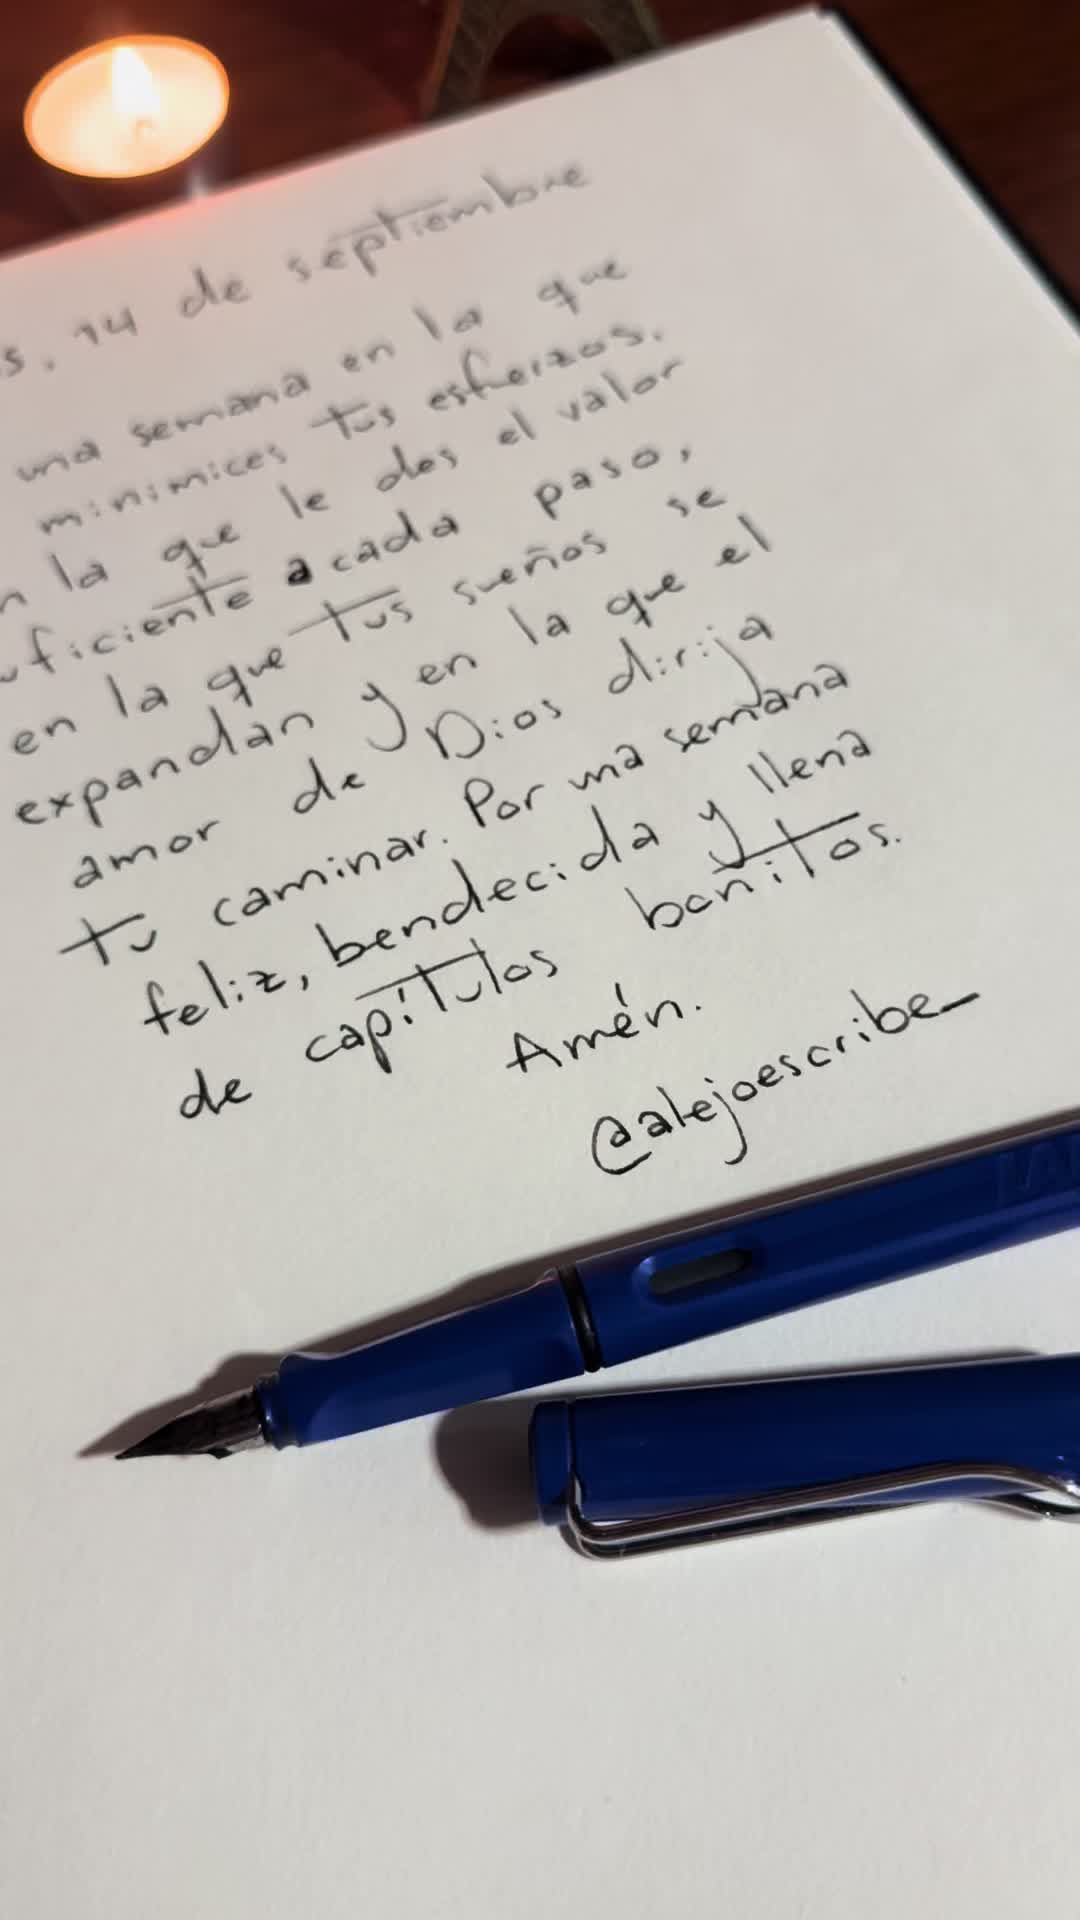 14 de septiembre
una semana en la que
minimices tus esfuerzos.
la que le des el valor
a cada paso,
en la que tus sueños se
expandan y en la que el
amor de Dios dirija
tu caminar. Por una semana
feliz, bendecida y llena
de capítulos bonitos.
Amén.
@alejoescribe_